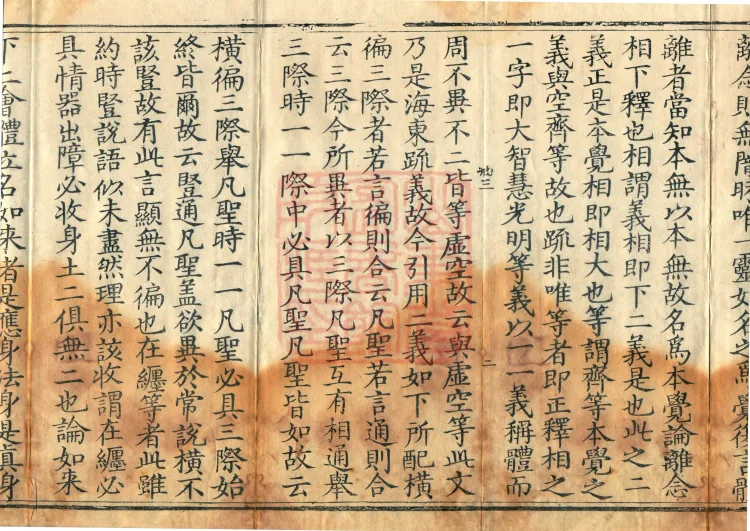 離念則無障眼唯一靈如名之爲覺後言體
離者當知本無以本無故名爲本覺論離念
相下釋也相謂義相即下二義是也此之二
義正是本覺相即相大也等謂齊等本覺之
義與空齊等故也疏非唯等者即正釋相之
一字即大智慧光明等義以一一義稱體而
三
二
周不異不二皆等虛空故云與虛空等此文
乃是海東疏義故今引用二義如下所配橫
徧三際者若言徧則合云凡聖若言通則合
云三際今所異者以三際凡聖互有相通舉
三際時一一際中必具凡聖凡聖皆如故云
橫徧三際舉凡聖時一一凡聖必具三際始
終皆爾故云豎通凡聖盖欲異於常說橫不
該豎故有此言顯無不徧也在纏等者此雖
約時豎說語似未盡然理亦該收謂在纏必
具情器出障必收身土二俱無二也論如來
下二會體立名如來者是應身法身是眞身